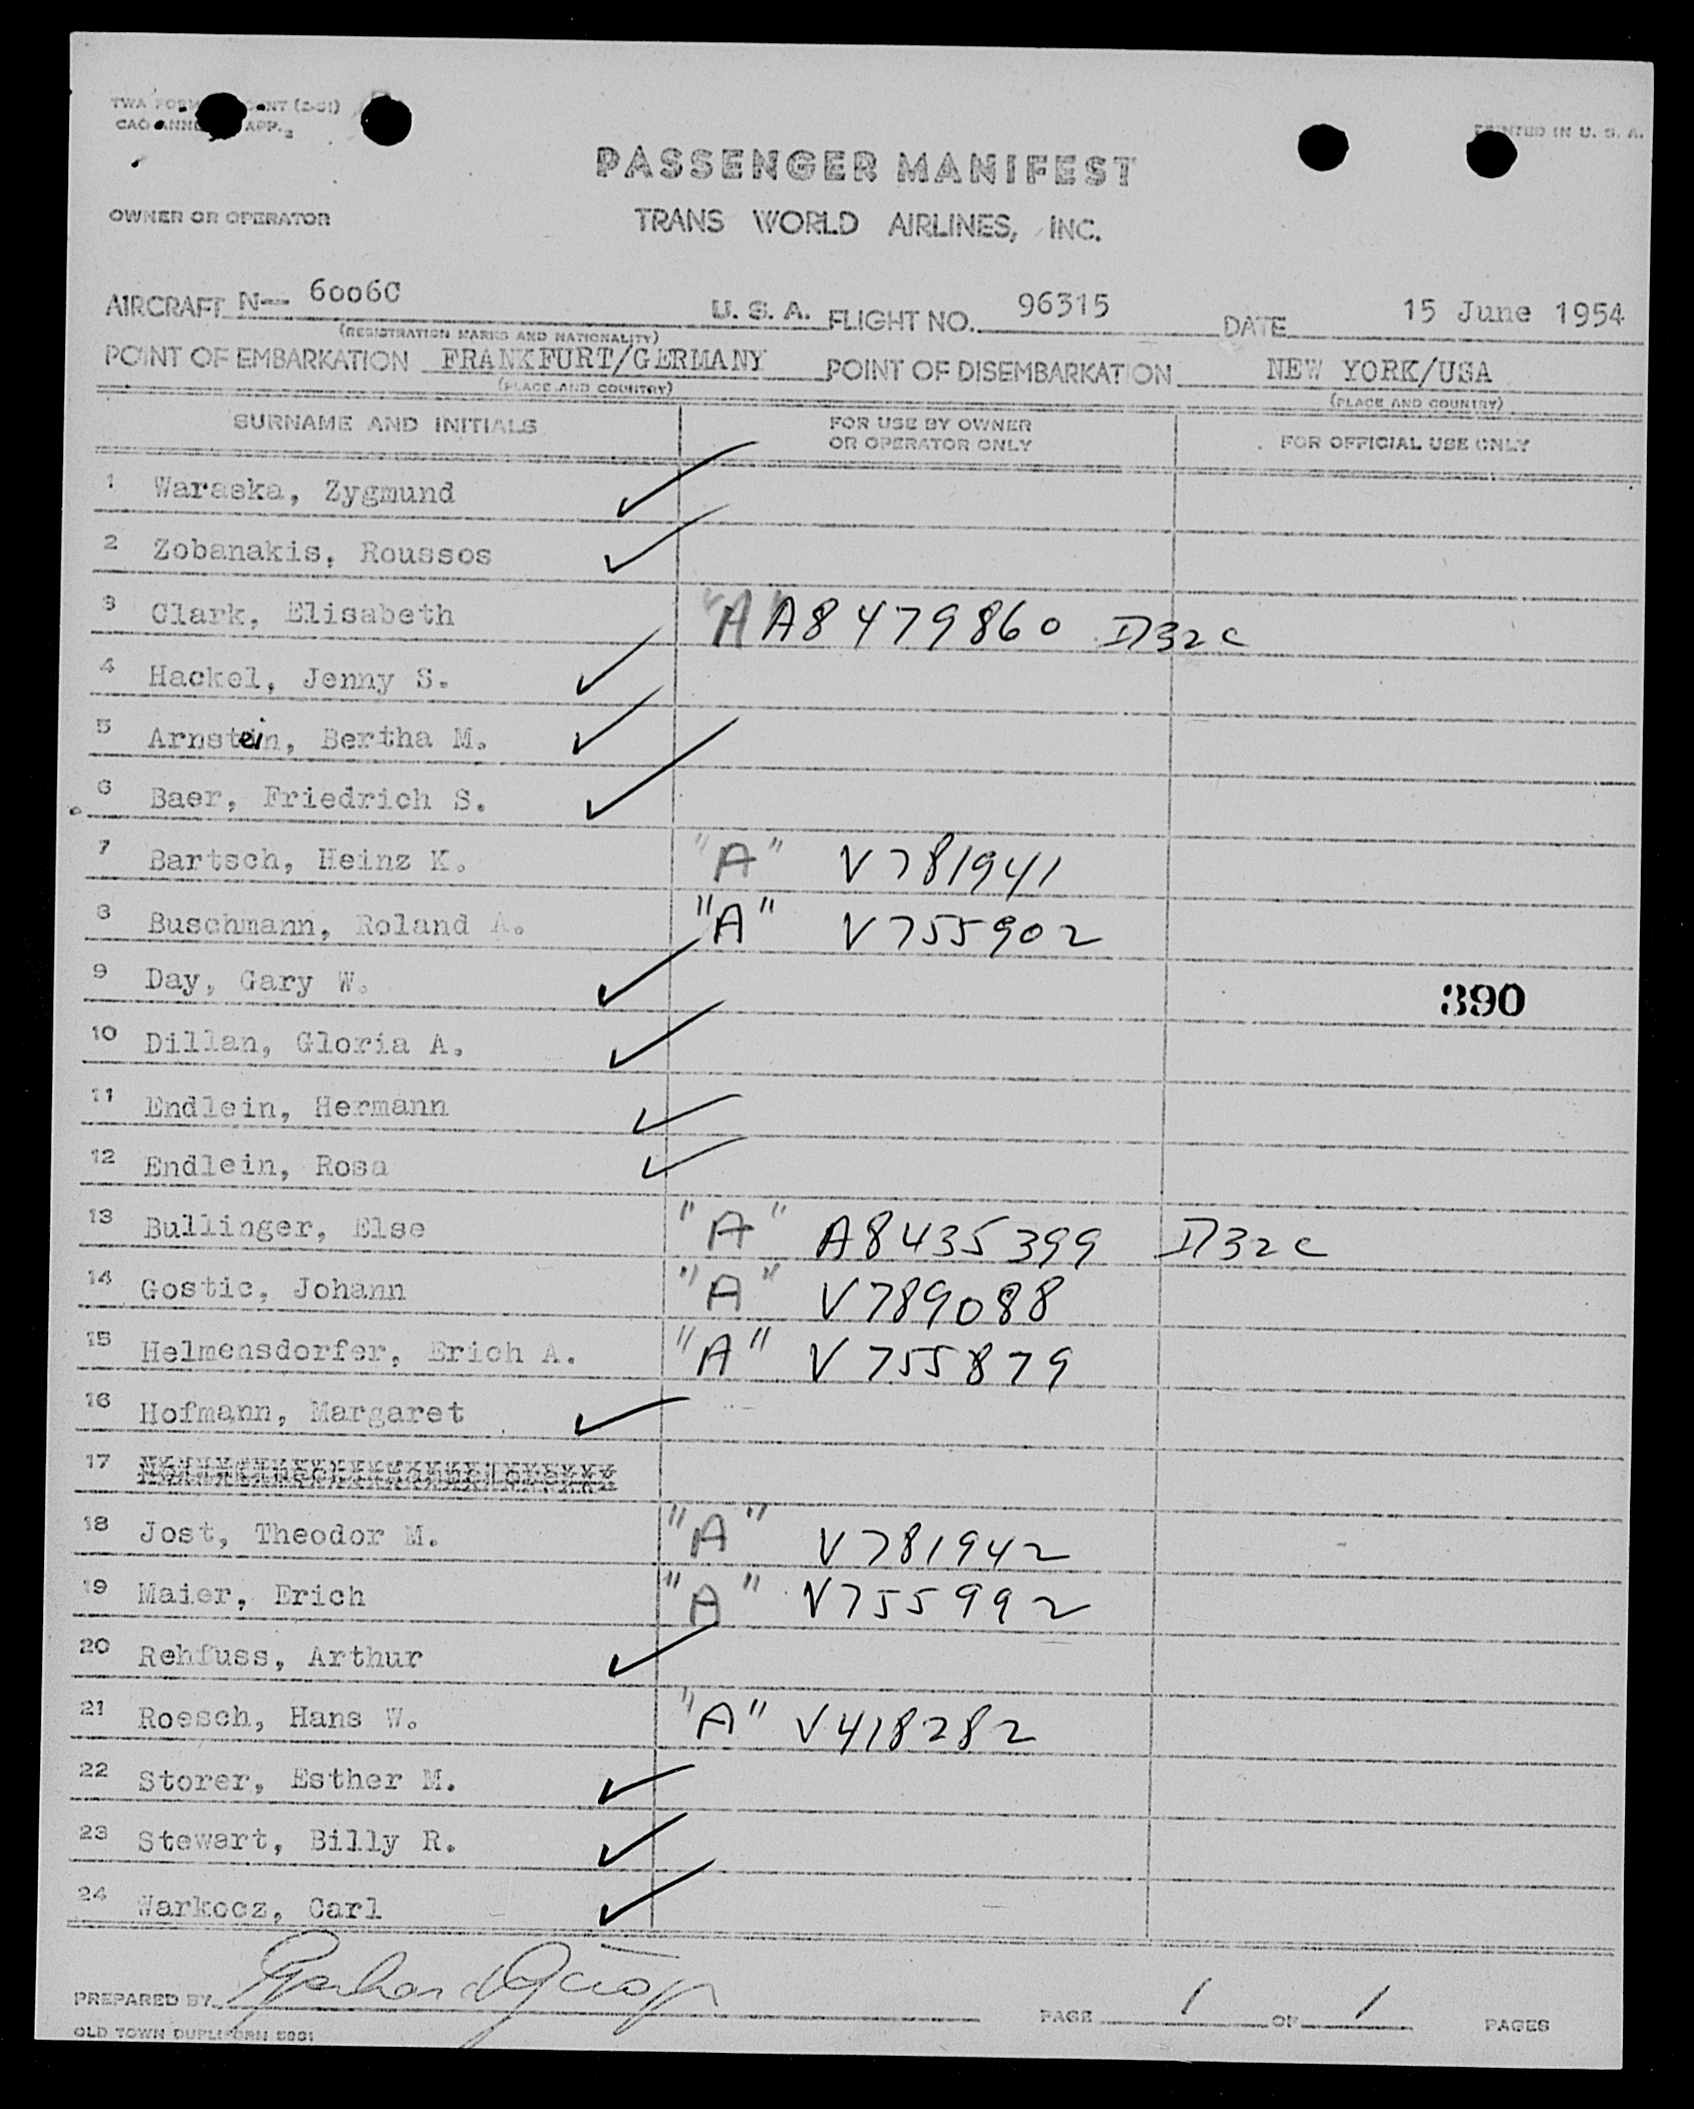 TWA FORM
PRINTED IN U. S. A.
PASSENGER MANIFEST
OWNER OR OPERATOR TRANS WORLD AIRLINES, INC.
AIRCRAFT N— 6006C U. S. A. FLIGHT NO. 96315 DATE 15 June 1954
(REGISTRATION MARKS AND NATIONALITY)
POINT OF EMBARKATION FRANKFURT/GERMANY POINT OF DISEMBARKATION NEW YORK/USA
(PLACE AND COUNTRY) (PLACE AND COUNTRY)
SURNAME AND INITIALS FOR USE BY OWNER OR OPERATOR ONLY FOR OFFICIAL USE ONLY
1 Waraska, Zygmund
2 Zobanakis, Roussos
3 Clark, Elisabeth "A" A8479860 D32c
4 Hackel, Jenny S.
5 Arnstein, Bertha M.
6 Baer, Friedrich S.
7 Bartsch, Heinz K. "A" V781941
8 Buschmann, Roland A. "A" V755902
9 Day, Gary W. 390
10 Dillan, Gloria A.
11 Endlein, Hermann
12 Endlein, Rosa
13 Bullinger, Else "A" A8435399 D32c
14 Gostic, Johann "A" V789088
15 Helmensdorfer, Erich A. "A" V755879
16 Hofmann, Margaret
17
18 Jost, Theodor M. "A" V781942
19 Maier, Erich "A" V755992
20 Rehfuss, Arthur
21 Roesch, Hans W. "A" V418282
22 Storer, Esther M.
23 Stewart, Billy R.
24 Warkocz, Carl
PREPARED BY PAGE 1 OF 1 PAGES
OLD TOWN DUPLIFORM